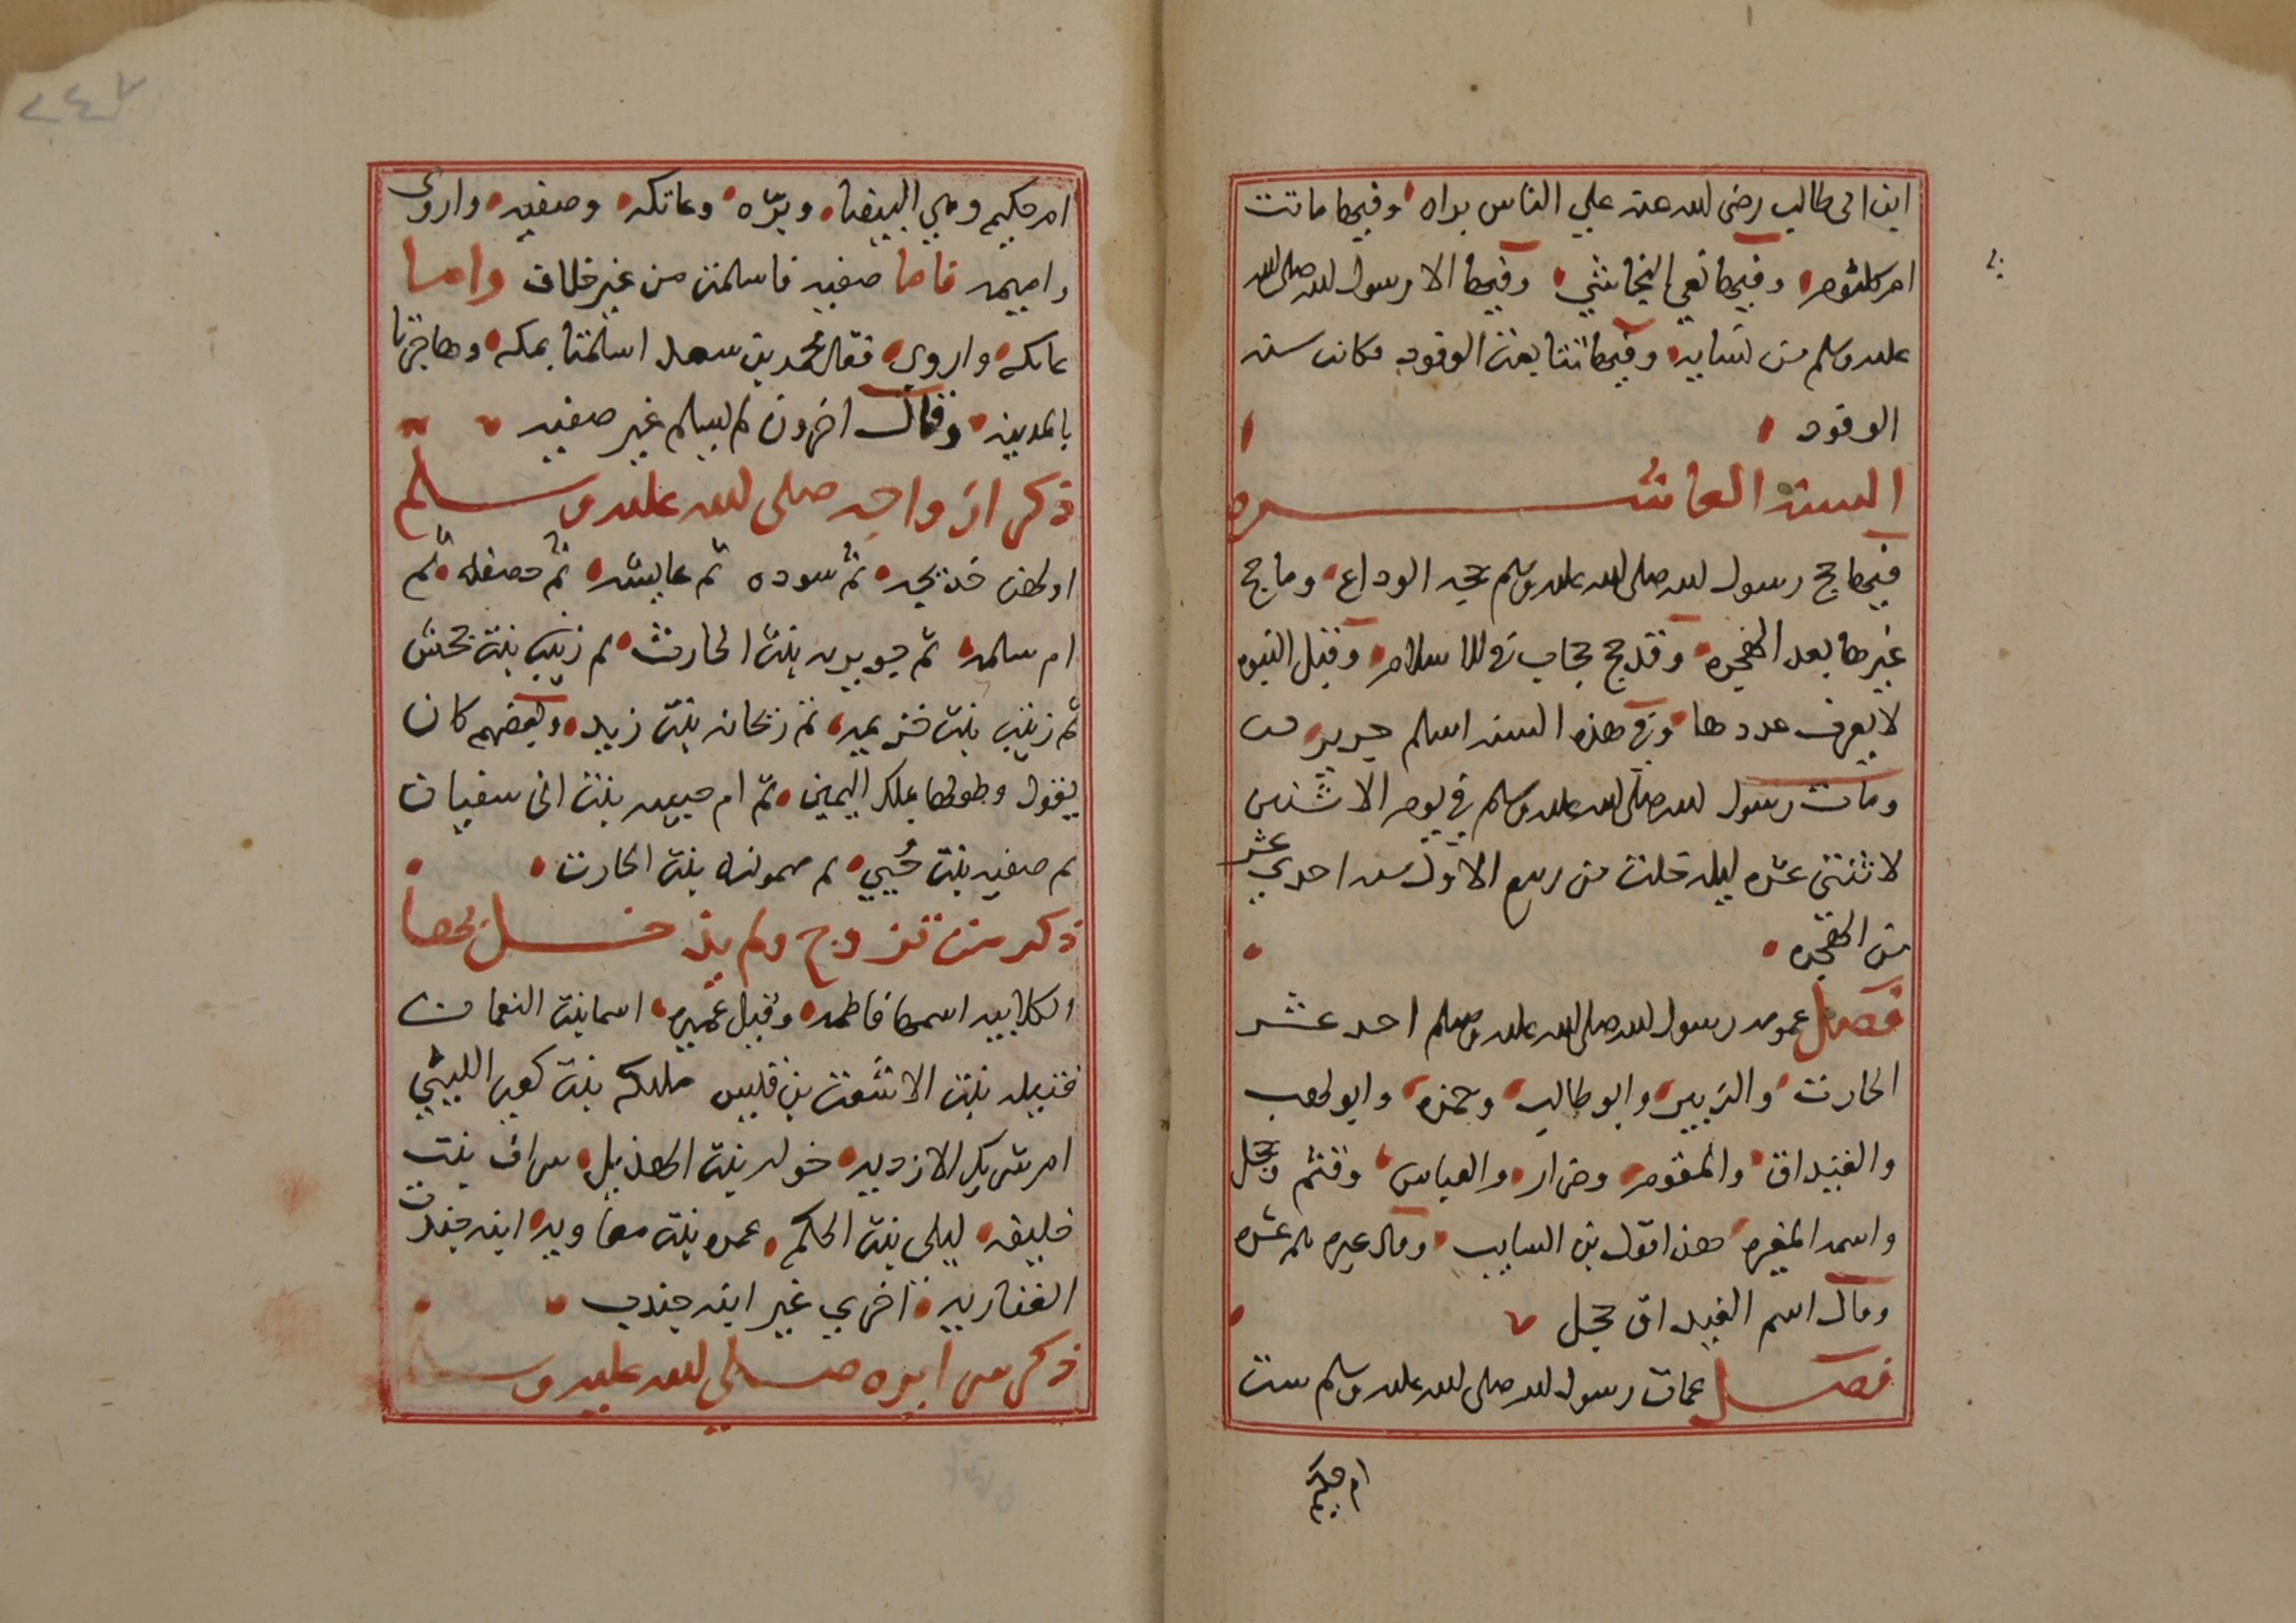 ابن ابي طالب رضي الله عنه علي الناس براه وفيها ماتت
ام كلثوم وفيها نعي النجاشي وفيها الا رسول الله صلى الله
عليه وسلم من نسايه وفيها تتابعت الوفود وكانت سنه
الوفود
السنه العاشره
فيها حج رسول الله صلى الله عليه وسلم حجه الوداع وما حج
غيرها بعد الهجره وقد حج حجات في الاسلام وقبل النبوه
لا يعرف عددها وفي هذه السنه اسلم جرير
ومات رسول الله صلى الله عليه وسلم في يوم الاثنين
لاثنتي عشره ليله خلت من ربيع الاول سنه احدي عشر
من الهجره
فصل عمومه رسول الله صلى الله عليه وسلم احد عشر
الحارث والزبير وابو طالب وحمزه وابو لهب
والغيداق والمقوم وضرار والعباس وقثم وحجل
واسمه المغيره هذا قول بن السايب وقال غيره عشره
وقال اسم الغيداق حجل
فصل عمات رسول الله صلى الله عليه وسلم ست
ام حكيم
٢٤٧
ام حكيم وهي البيضا وبرّه وعاتكه وصفيه واروى
واميمه فاما صفيه فاسلمت من غير خلاف واما
عاتكه واروي فقال محمد بن سعد اسلمتا بمكه وهاجرتا
بالمدينه وقال اخرون لم يسلم غير صفيه
ذكر ازواجه صلى الله عليه وسلم
اولهن خديجه ثم سوده ثم عايشه ثم حفصه ثم
ام سلمه ثم جويريه بنت الحارث ثم زينب بنت جحش
ثم زينب بنت خزيمه ثم ريحانه بنت زيد وبعضهم كان
يقول وطوها بملك اليمين ثم ام حبيبه بنت ابى سفيان
ثم صفيه بنت حُيي ثم ميمونه بنت الحارث
ذكر من تزوج ولم يدخل بها
الكلابيه اسمها فاطمه وقيل عمره اسما بنت النعمان
قتيله بنت الاشعث بن قيس مليكه بنت كعب الليثي
ام شريك الازديه خوله بنت الهذيل شراف بنت
خليفه ليلى بنت الحكم عمره بنت معاويه ابنه جندب
الغفاريه اخري غير ابنه جندب
ذكر سراريه صلى الله عليه وسلم